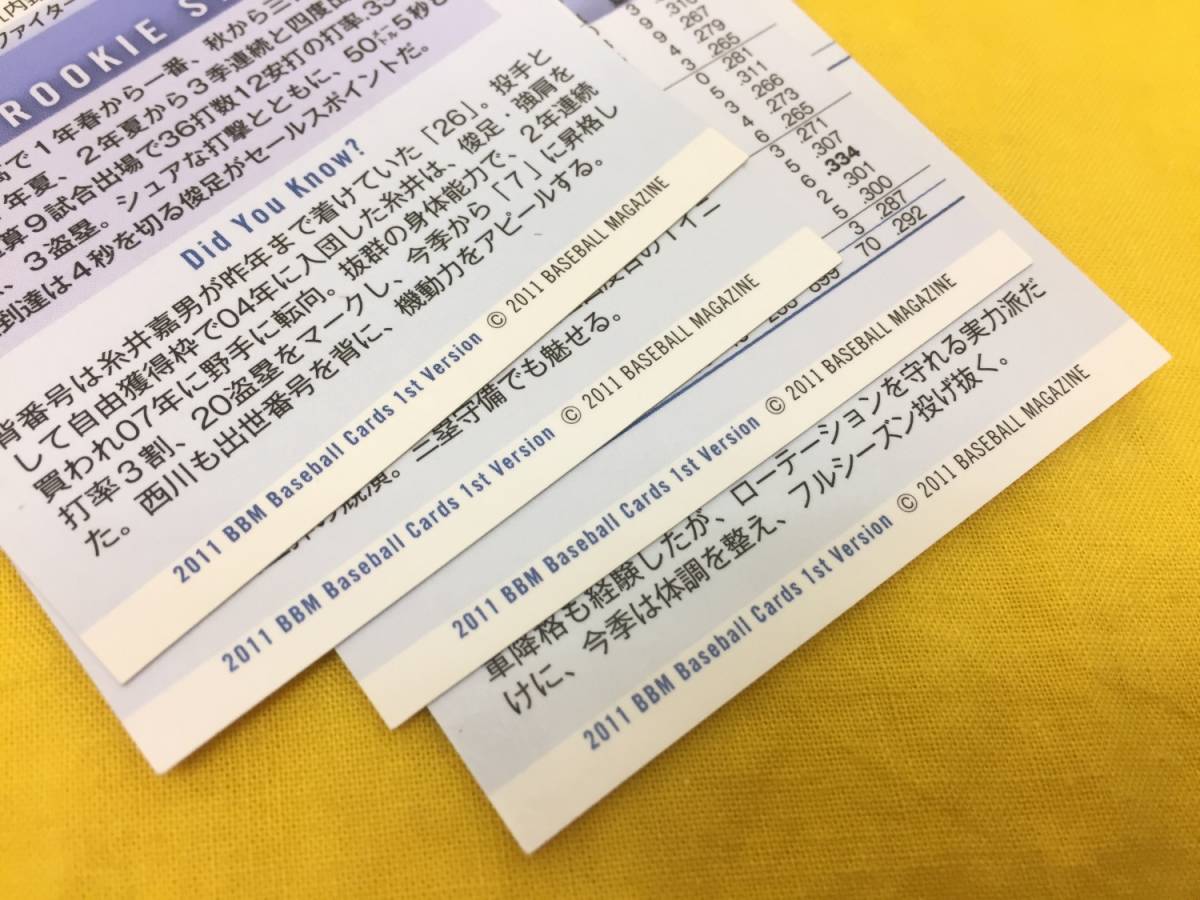 ROOKIE S
で1年春から一番、秋から三
年夏、2年夏から3季連続と四度出
算9試合出場で36打数12安打の打率.33
、3盗塁。シュアな打撃とともに、50メートル5秒と
到達は4秒を切る俊足がセールスポイントだ。
Did You Know?
背番号は糸井嘉男が昨年まで着けていた「26」。投手と
して自由獲得枠で04年に入団した糸井は、俊足・強肩を
買われ07年に野手に転向。抜群の身体能力で、2年連続
打率3割、20盗塁をマークし、今季から「7」に昇格し
た。西川も出世番号を背に、機動力をアピールする。
2011 BBM Baseball Cards 1st Version © 2011 BASEBALL MAGAZINE
二塁守備でも魅せる。
2011 BBM Baseball Cards 1st Version © 2011 BASEBALL MAGAZINE
9 .267
4 .279
3 .265
0 .281
5 .311
3 .266
4 .273
6 .265
3 .271
5 .307
6 .334
2 .301
5 .300
3 .287
70 .292
2011 BBM Baseball Cards 1st Version © 2011 BASEBALL MAGAZINE
車降格も経験したが、ローテーションを守れる実力派だ
けに、今季は体調を整え、フルシーズン投げ抜く。
2011 BBM Baseball Cards 1st Version © 2011 BASEBALL MAGAZINE